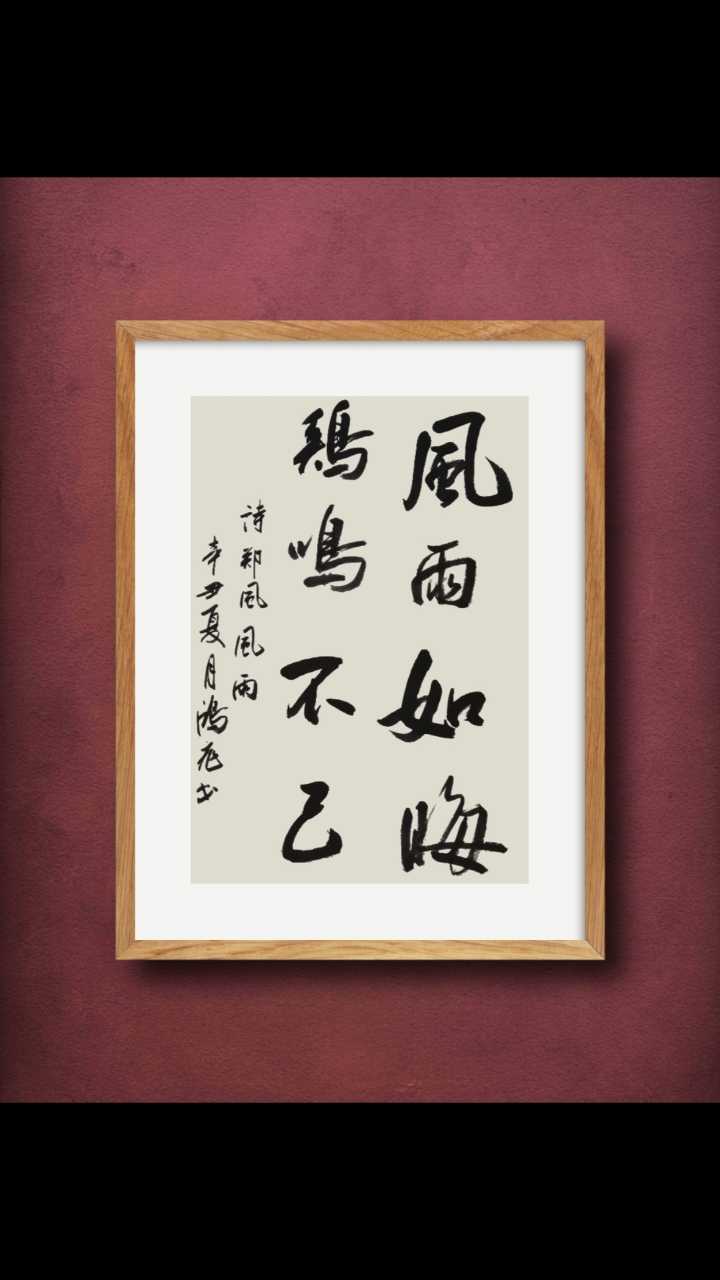 風雨如晦
鷄鳴不已
詩鄭风風雨
辛丑夏月鴻 书